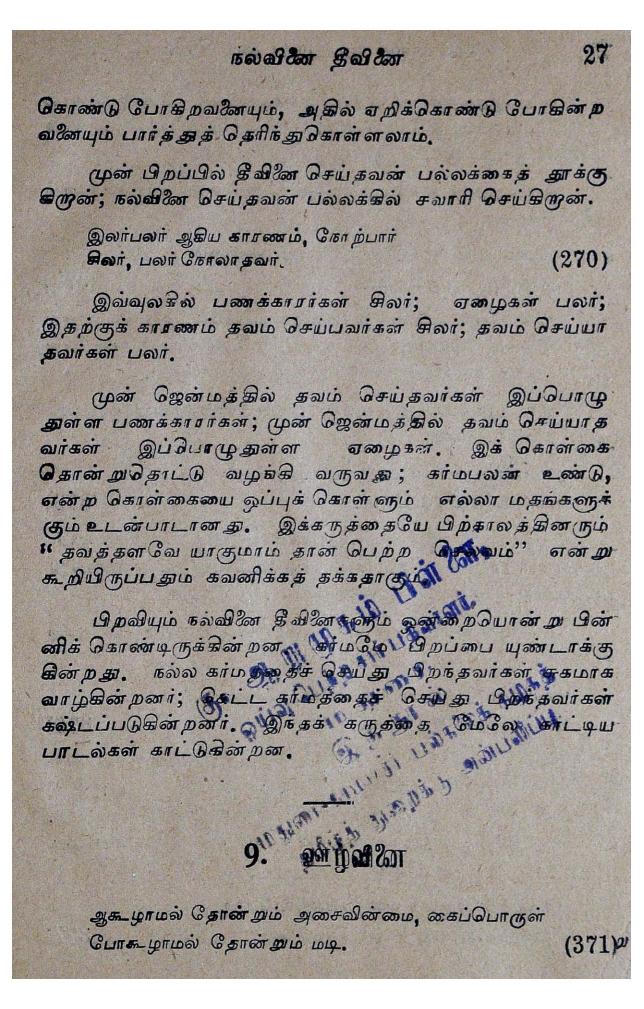 நல்வினை தீவினை 27
கொண்டு போகிறவனையும், அதில் ஏறிக்கொண்டு போகின்ற
வனையும் பார்த்துத் தெரிந்துகொள்ளலாம்.
முன் பிறப்பில் தீவினை செய்தவன் பல்லக்கைத் தூக்கு
கிறான்; நல்வினை செய்தவன் பல்லக்கில் சவாரி செய்கிறான்.
இலர்பலர் ஆகிய காரணம், நோற்பார்
சிலர், பலர் நோலாதவர். (270)
இவ்வுலகில் பணக்காரர்கள் சிலர்; ஏழைகள் பலர்;
இதற்குக் காரணம் தவம் செய்பவர்கள் சிலர்; தவம் செய்யா
தவர்கள் பலர்.
முன் ஜென்மத்தில் தவம் செய்தவர்கள் இப்பொழு
துள்ள பணக்காரர்கள்; முன் ஜென்மத்தில் தவம் செய்யாத
வர்கள் இப்பொழுதுள்ள ஏழைகள். இக் கொள்கை
தொன்றுதொட்டு வழங்கி வருவது; கர்மபலன் உண்டு,
என்ற கொள்கையை ஒப்புக் கொள்ளும் எல்லா மதங்களுக்
கும் உடன்பாடானது. இக்கருத்தையே பிற்காலத்தினரும்
“தவத்தளவே யாகுமாம் தான் பெற்ற செல்வம்” என்று
கூறியிருப்பதும் கவனிக்கத் தக்கதாகும்.
பிறவியும் நல்வினை தீவினைகளும் ஒன்றையொன்று பின்
னிக் கொண்டிருக்கின்றன. கர்மமே பிறப்பை யுண்டாக்கு
கின்றது. நல்ல கர்மத்தைச் செய்து பிறந்தவர்கள் சுகமாக
வாழ்கின்றனர்; கெட்ட கர்மத்தைச் செய்து பிறந்தவர்கள்
கஷ்டப்படுகின்றனர். இந்தக் கருத்தை மேலே காட்டிய
பாடல்கள் காட்டுகின்றன.
கு. ஆறுமுகம் பிள்ளை,
9. ஊழ்வினை
ஆகூழாமல் தோன்றும் அசைவின்மை, கைப்பொருள்
போகூழாமல் தோன்றும் மடி. (371)